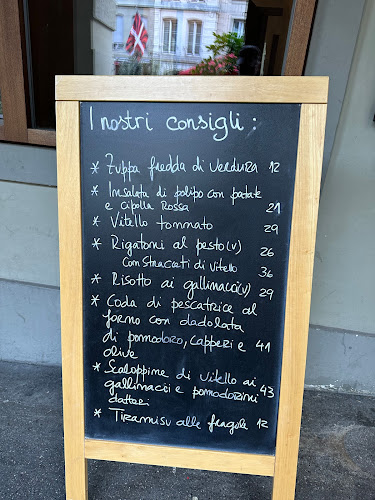 I nostri consigli :
* Zuppa fredda di verdura 12
* Insalata di polipo con patate
e cipolla Rossa 21
* Vitello tonnato 29
* Rigatoni al pesto (v) 26
con Straccetti di vitello 36
* Risotto ai gallinacci (v) 29
* Coda di pescatrice al
forno con dadolata
di pomodoro, capperi e 41
olive
* Scaloppine di vitello ai
gallinacci e pomodorini 43
datteri
* Tiramisu alle fragole 12